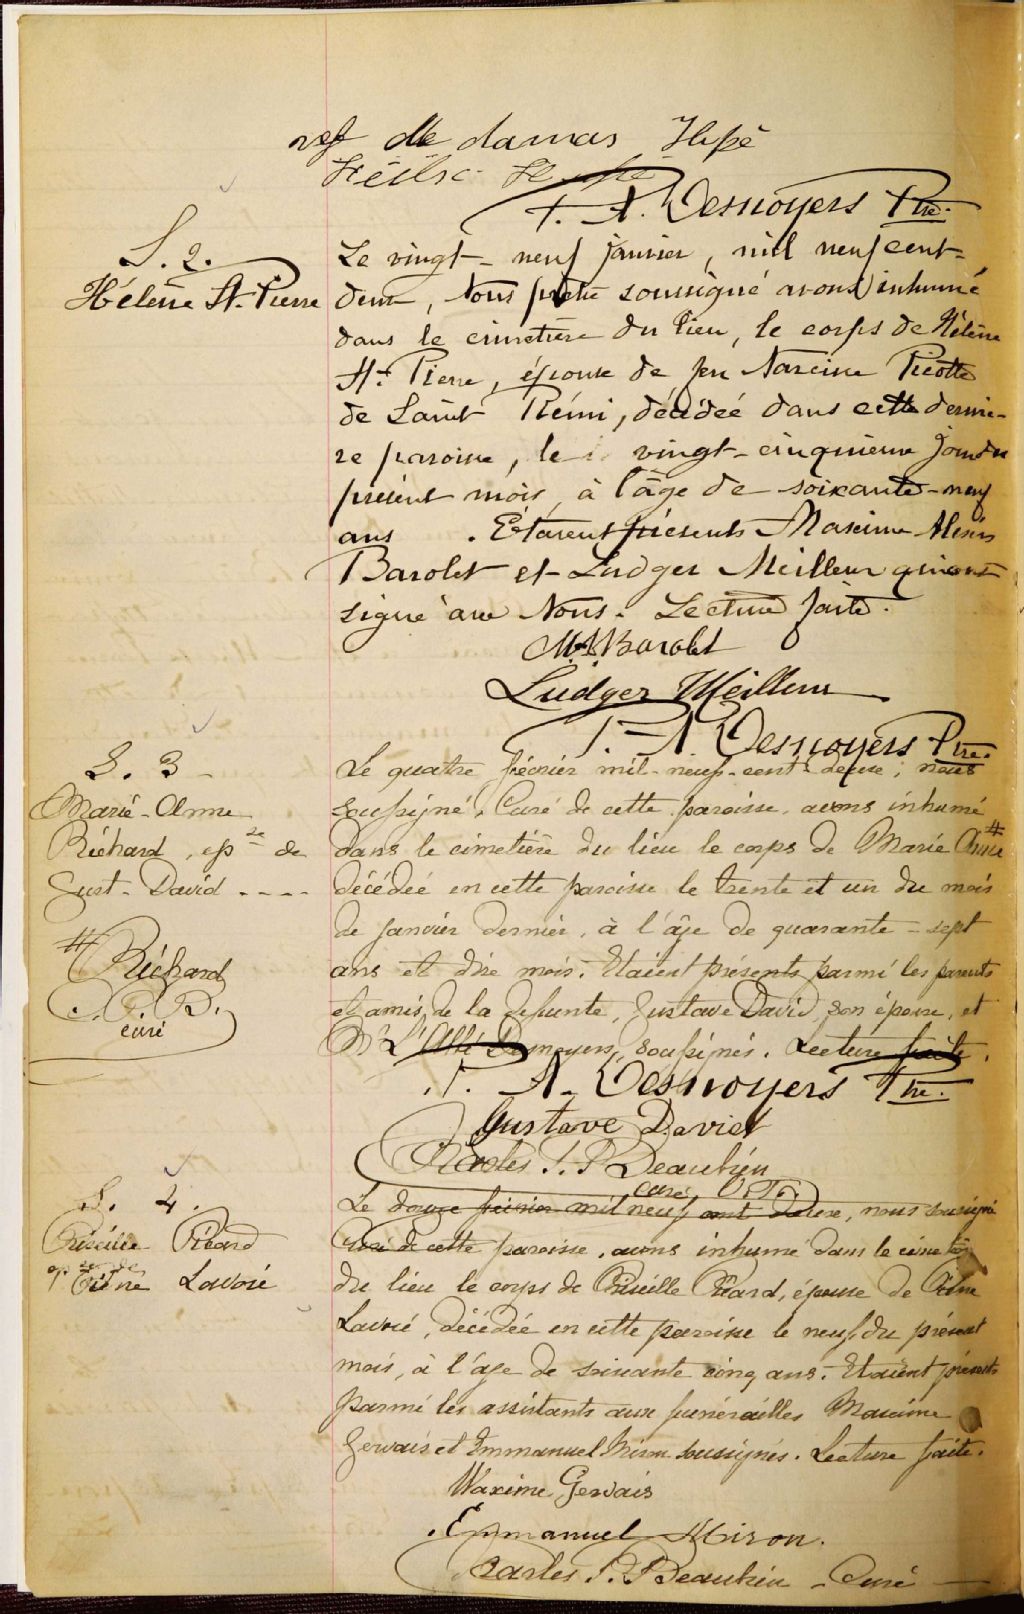 de damas
J. A. Desnoyers Ptre.
S. 2.
Hélène St-Pierre
Le vingt-neuf janvier, mil neuf cent-
deux, Nous prêtre soussigné avons inhumé
dans le cimetière du lieu, le corps de Hélène
St-Pierre, épouse de feu Narcisse Picotte
de Saint Rémi, décédée dans cette derniè-
re paroisse, le vingt-cinquième jour du
présent mois, à l'âge de soixante-neuf
ans. Étaient présents Maxime Alexis
Barolet et Ludger Meilleur qui ont
signé avec Nous. Lecture faite.
M. A. Barolet
Ludger Meilleur
J. A. Desnoyers Ptre.
S. 3
Marie-Anne
Richard, épse de
Gust. David ----
Le quatre février mil-neuf-cent-deux, nous
soussigné, Curé de cette paroisse avons inhumé
dans le cimetière du lieu le corps de Marie Anne #
décédée en cette paroisse le trente et un du mois
de janvier dernier, à l'âge de quarante-sept
# Richard
C. P. B.
curé
ans et dix mois. Etaient présents parmi les parents
et amis de la défunte, Gustave David, son époux, et
Mr L'Abbé Desnoyers, soussignés. Lecture faite.
J. A. Desnoyers Ptre.
Gustave David
Charles P. Beaubien
curé
S. 4.
Priscille Picard
Lavoie
Le douze février mil neuf cent deux, nous soussigné
Curé de cette paroisse, avons inhumé dans le cimetière
du lieu le corps de Priscille Picard, épouse de
Lavoie, décédée en cette paroisse le neuf du présent
mois, à l'âge de soixante cinq ans. Etaient présents
parmi les assistants aux funérailles Maxime
Gervais et Emmanuel Miron soussignés. Lecture faite.
Maxime Gervais
Emmanuel Miron.
Charles P. Beaubien - Curé